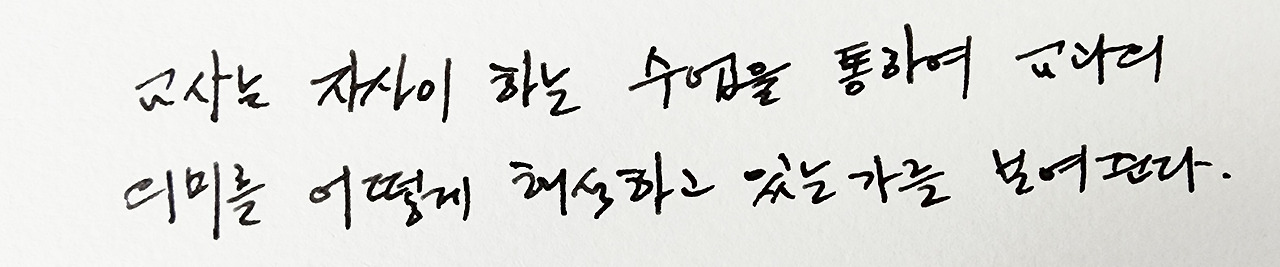 교사는 자신이 하는 수업을 통하여 교과의
의미를 어떻게 해석하고 있는가를 보여준다.